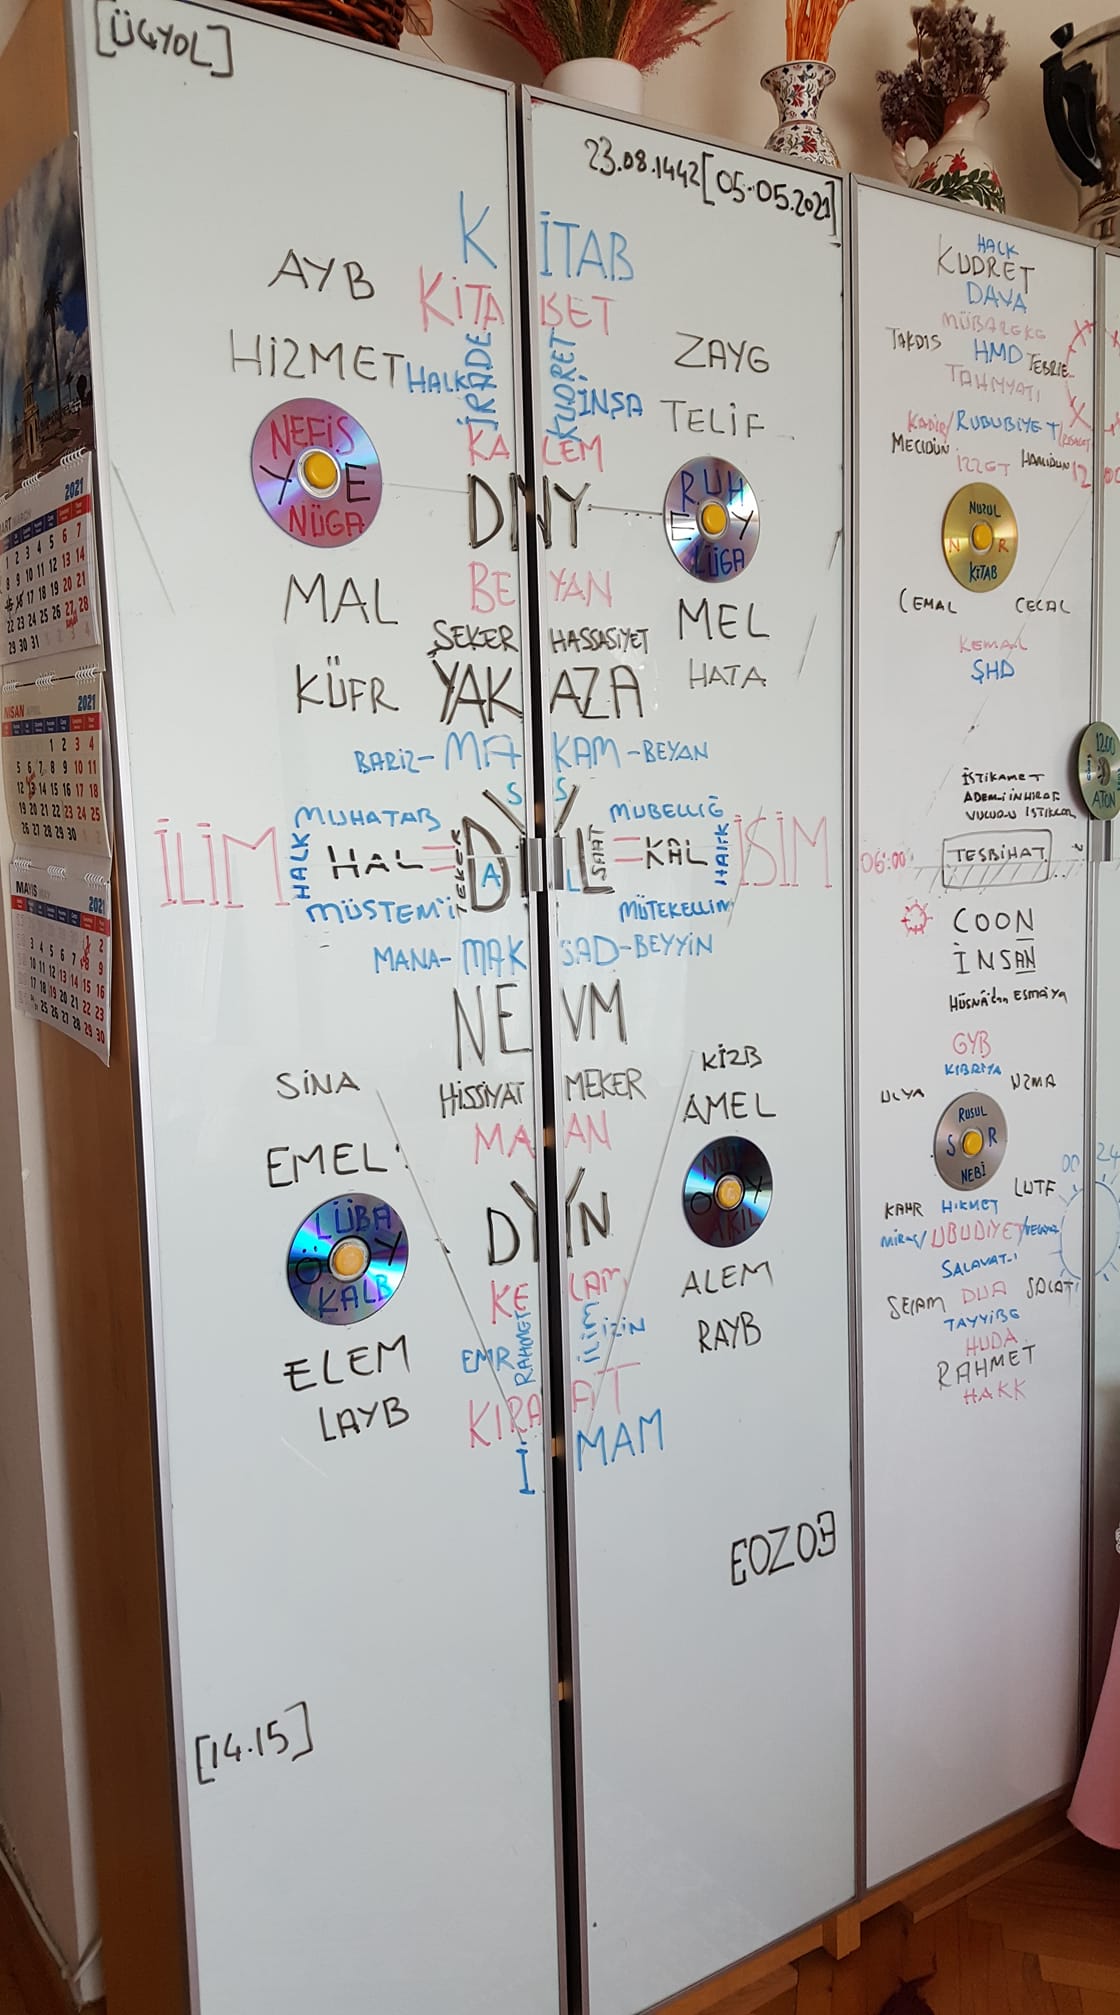 [ÜÇYOL]
23.08.1442[05.05.2021]
KİTAB
AYB
KİTABET
HİZMET
HALK
İRADE
KUDRET
İNŞA
ZAYG
TELİF
KALEM
NEFİS
Y E
NÜGA
DNY
RUH
E Y
LÜGA
BEYAN
MAL
MEL
ŞEKER HASSASİYET
KÜFR
YAKAZA
HATA
BARİZ-MAKAM-BEYAN
S S
MUHATAB
MÜBELLİĞ
İLİM
HALK
HAL
=
TEKER
DİL
A L
SAAT
=
KAL
HALK
İSİM
MÜSTEMİ
MÜTEKELLİM
MANA-MAKSAD-BEYYİN
NEVM
SİNA
HİSSİYAT MEKER
KİZB
EMEL
MAAN
AMEL
LÜBA
Ö Y
KALB
DYN
Ö Y
AKIL
KELAM
ALEM
ELEM
EMR
RAHMET
İLİM
İZİN
RAYB
LAYB
KIRAAT
İMAM
EOZOE
[14.15]
HALK
KUDRET
DAVA
MÜBAREKE
TAKDİS
HMD
TEBRİE
TAHIYYATI
KADİR/RUBUBİYET
MECİDÜN
İZZET
HAMİDÜN
NUZUL
N R
KİTAB
CEMAL
CELAL
KEMAL
ŞHD
İSTİKAMET
ADEM-İ İNHİRAF
06:00
TESBİHAT
COON
İNSAN
HÜSNA'dan ESMA'ya
GYB
KIBRIYA
ULYA
UZMA
RUSUL
S R
NEBİ
LUTF
KAHR
HİKMET
MİRAC/UBUDİYET
SALAVAT-I
SELAM
DUA
SALAT
TAYYİBE
HUDA
RAHMET
HAKK
00 24
12.00
ATON
2021
MART MARCH
2021
NİSAN APRIL
2021
MAYIS MAY